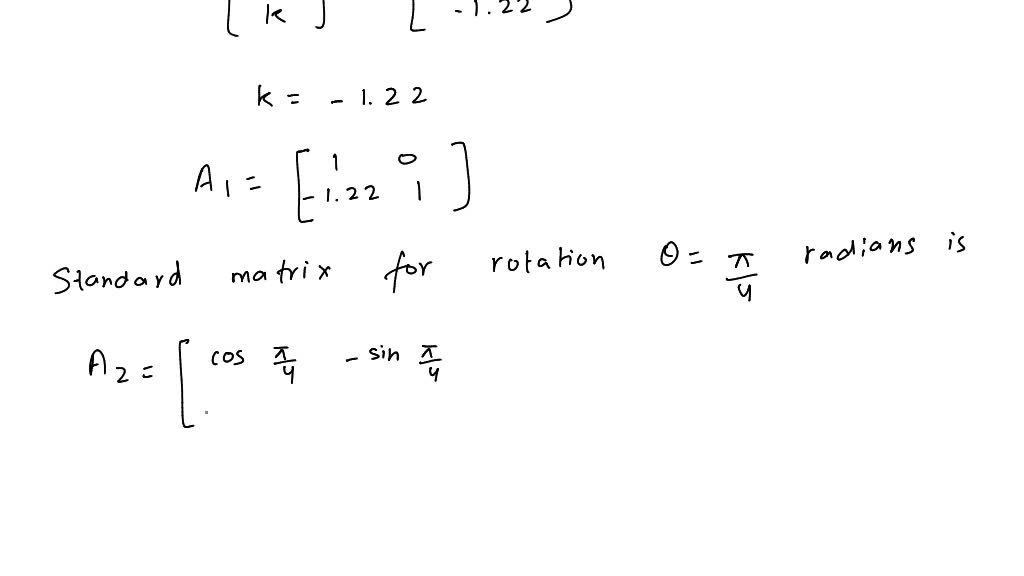 [ k ] [ -1.22 ]
k = -1.22
A1 = [ 1 0
-1.22 1 ]
Standard matrix for rotation θ = π/4 radians is
A2 = [ cos π/4 - sin π/4